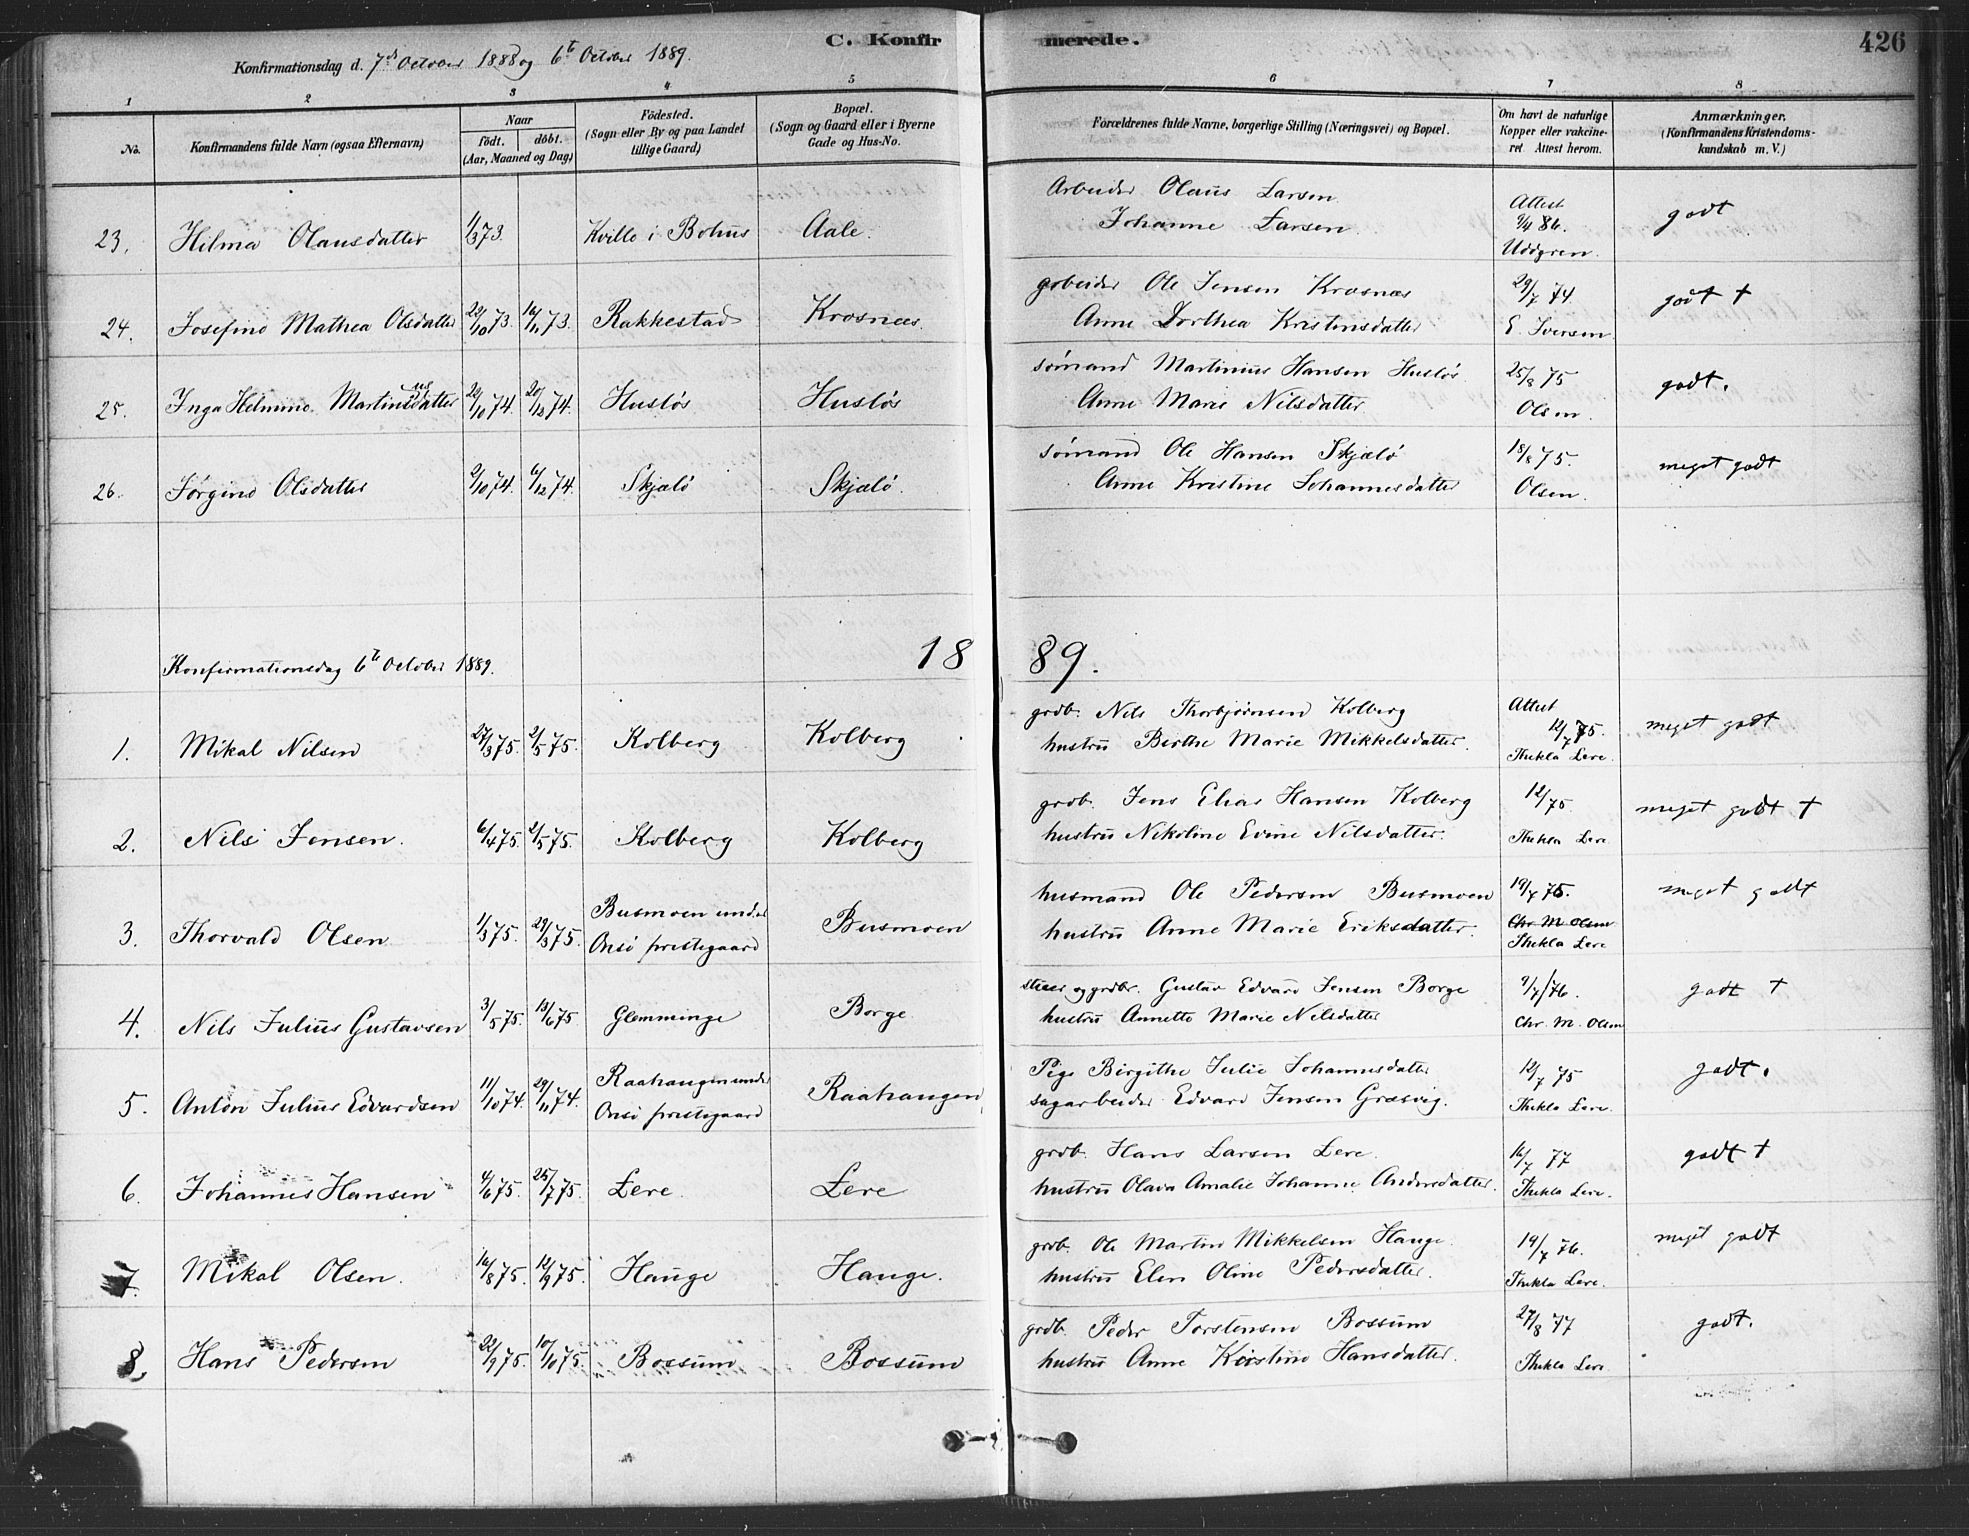 C. Konfirmerede.
426
Konfirmationsdag d. 7de October 1888 og 6te October 1889.
1 2 3 4 5 6 7 8
No.
Konfirmandens fulde Navn (ogsaa Efternavn)
Naar
födt. döbt.
(Aar, Maaned og Dag)
Födested.
(Sogn eller By og paa Landet
tillige Gaard)
Bopæl.
(Sogn og Gaard eller i Byerne
Gade og Hus-No.
Forældrenes fulde Navne, borgerlige Stilling (Næringsvei) og Bopæl.
Om havt de naturlige
Kopper eller vakcine-
ret. Attest herom.
Anmærkninger.
(Konfirmandens Kristendoms-
kundskab m. V.)
23. Hilma Olausdatter 1/3 73. Kville i Bohus Aale.
Arbeider Olaus Larsen
Johanne Larsen.
Attest
9/4 86.
Uddgren.
godt
24. Josefine Mathea Olsdatter 22/10 73. 16/11 73. Rakkestad Krosnæs.
arbeider Ole Jensen Krosnæs
Anne Dorthea Kristensdatter
29/7 74.
E. Iversen
godt +
25. Inga Helmine Martinusdatter 29/10 74. 20/12 74. Husløs Husløs
sømand Martinius Hansen Husløs
Anne Marie Nilsdatter
25/8 75
Olsen.
godt.
26. Jørgine Olsdatter 2/10 74. 6/12 74. Skjælø Skjælø.
sømand Ole Hansen Skjælø
Anne Kristine Johannesdatter
18/8 75.
Olsen.
meget godt
1889.
Konfirmationsdag 6te October 1889.
1. Mikal Nilsen 27/3 75. 2/5 75. Kolberg Kolberg
grdb. Nils Thorbjørnsen Kolberg
hustru Birthe Marie Mikkelsdatter.
Attest
12/7 75.
Thekla Lere.
meget godt
2. Nils Jensen. 6/4 75. 2/5 75. Kolberg Kolberg
grdb. Jens Elias Hansen Kolberg
hustru Nikoline Evine Nilsdatter.
12/75
Thekla Lere
meget godt +
3. Thorvald Olsen 1/3 75. 29/3 75. Busmoen under
Onsø prestegaard
Busmoen
husmand Ole Pedersen Busmoen
hustru Anne Marie Eriksdatter.
19/7 75.
Chr M Olsen
Thekla Lere
meget godt
4. Nils Julius Gustavsen 3/5 75. 13/6 75 Glemminge Borge.
grdbr. Gustav Edvard Jensen Borge
hustru Annette Marie Nilsdatter
9/7/76.
Chr. M. Olsen
godt +
5. Anton Julius Edvardsen 11/10 74. 29/11 74. Raahaugen under
Onsø prestegaard
Raahaugen
Pige Birgithe Julie Johannesdatter
sagarbeider Edvard Jensen Græsvig.
12/7 75
Thekla Lere.
godt.
6. Johannes Hansen 4/6 75. 25/7 75. Lere. Lere
grdb. Hans Larsen Lere.
hustru Olava Amalie Johanne Andersdatter.
16/7 77
Thekla Lere.
godt +
7. Mikal Olsen. 16/8 75. 12/9 75. Hauge Hauge.
grdb. Ole Martin Mikkelsen Hauge.
hustru Elen Oline Pedersdatter.
19/7 76.
Thekla Lere.
meget godt
8. Hans Pedersen 22/9 75. 10/10 75. Bossum Bossum
grdb. Peder Torstensen Bossum
hustru Anne Kristine Hansdatter.
27/8 77
Thekla Lere.
godt.